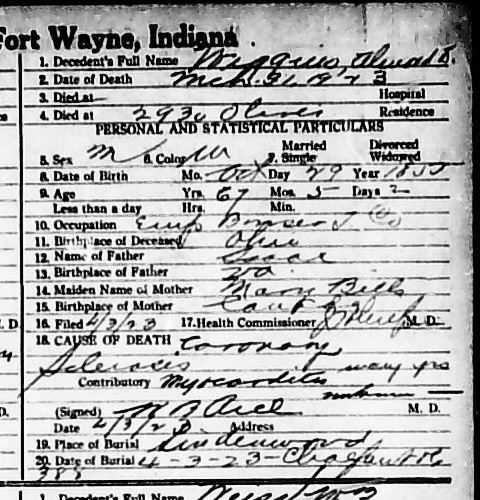 Fort Wayne, Indiana
1. Decedent's Full Name Wiggins,
2. Date of Death Mch. 31, 1923
3. Died at Hospital
4. Died at 2930 Olive Residence
PERSONAL AND STATISTICAL PARTICULARS
5. Sex M 6. Color W 7. Married Single Divorced Widowed
8. Date of Birth Mo. Oct Day 29 Year 1855
9. Age Yrs. 67 Mos. 5 Days 2
Less than a day Hrs. Min.
10. Occupation Bowser Co
11. Birthplace of Deceased Ohio
12. Name of Father Isaac
13. Birthplace of Father Va
14. Maiden Name of Mother Mary Bills
15. Birthplace of Mother
16. Filed 4/3/23 17. Health Commissioner M. D.
18. CAUSE OF DEATH Coronary
Sclerosis many yrs
Contributory Myocarditis
unknown
(Signed) M. D.
Date 4/3/23 Address
19. Place of Burial Lindenwood
20. Date of Burial 4-3-23-
388
1. Decedent's Full Name